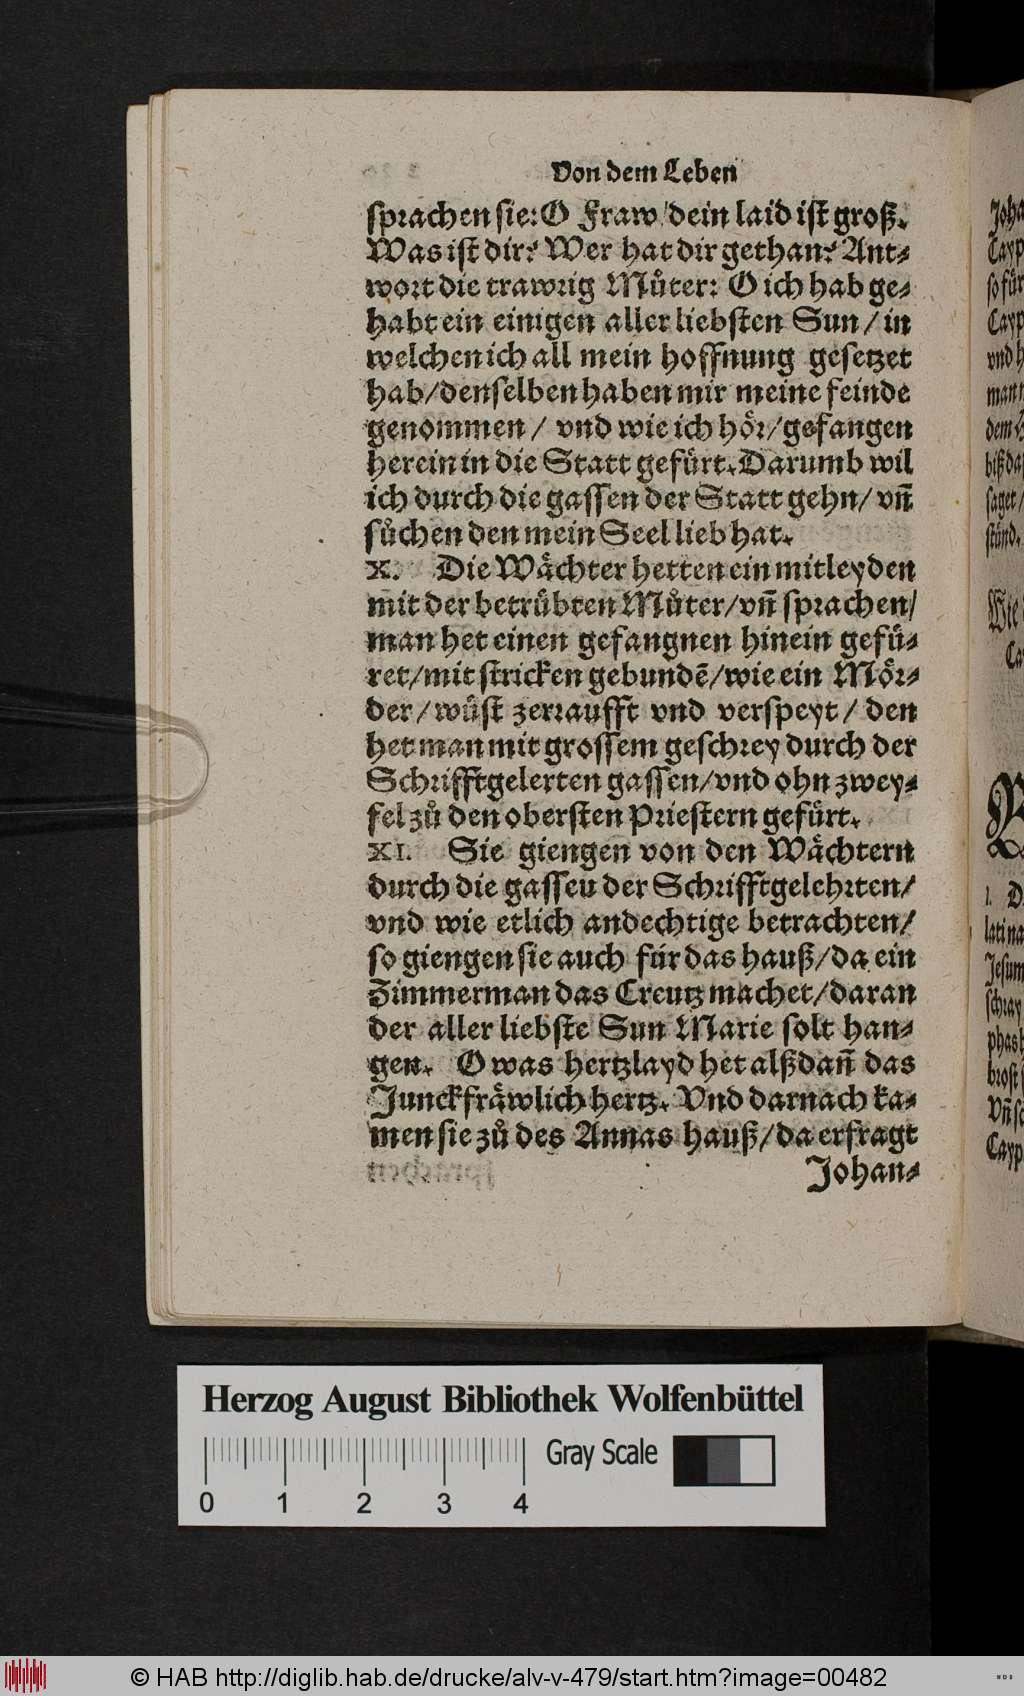 Von dem Leben
sprachen sie: O Fraw / dein laid ist groß.
Was ist dir? Wer hat dir gethan? Ant-
wort die trawrig Můter: O ich hab ge-
habt ein einigen aller liebsten Sun / in
welchen ich all mein hoffnung gesetzet
hab / denselben haben mir meine feinde
genommen / vnd wie ich hör / gefangen
herein in die Statt gefürt. Darumb wil
ich durch die gassen der Statt gehn / vñ
sůchen den mein Seel lieb hat.
X. Die Wächter hetten ein mitleyden
mit der betrübten Můter / vñ sprachen /
man het einen gefangnen hinein gefü-
ret / mit stricken gebundẽ / wie ein Mör-
der / wüst zerraufft vnd verspeyt / den
het man mit grossem geschrey durch der
Schrifftgelerten gassen / vnd ohn zwey-
fel zů den obersten Priestern gefürt.
XI. Sie giengen von den Wächtern
durch die gasseu der Schrifftgelehrten /
vnd wie etlich andechtige betrachten /
so giengen sie auch für das hauß / da ein
Zimmerman das Creutz machet / daran
der aller liebste Sun Marie solt han-
gen. O was hertzlayd het alßdañ das
Junckfräwlich hertz. Vnd darnach ka-
men sie zů des Annas hauß / da erfragt
Johan-
Joha
Cayp
so für
Cayp
vnd h
man
dem
biß da
saget /
stünd.
Wie
Ca
I. D
latina
Jesum
schray
phas
brost
Vñ
Cayp
Herzog August Bibliothek Wolfenbüttel
Gray Scale
0 1 2 3 4
© HAB http://diglib.hab.de/drucke/alv-v-479/start.htm?image=00482